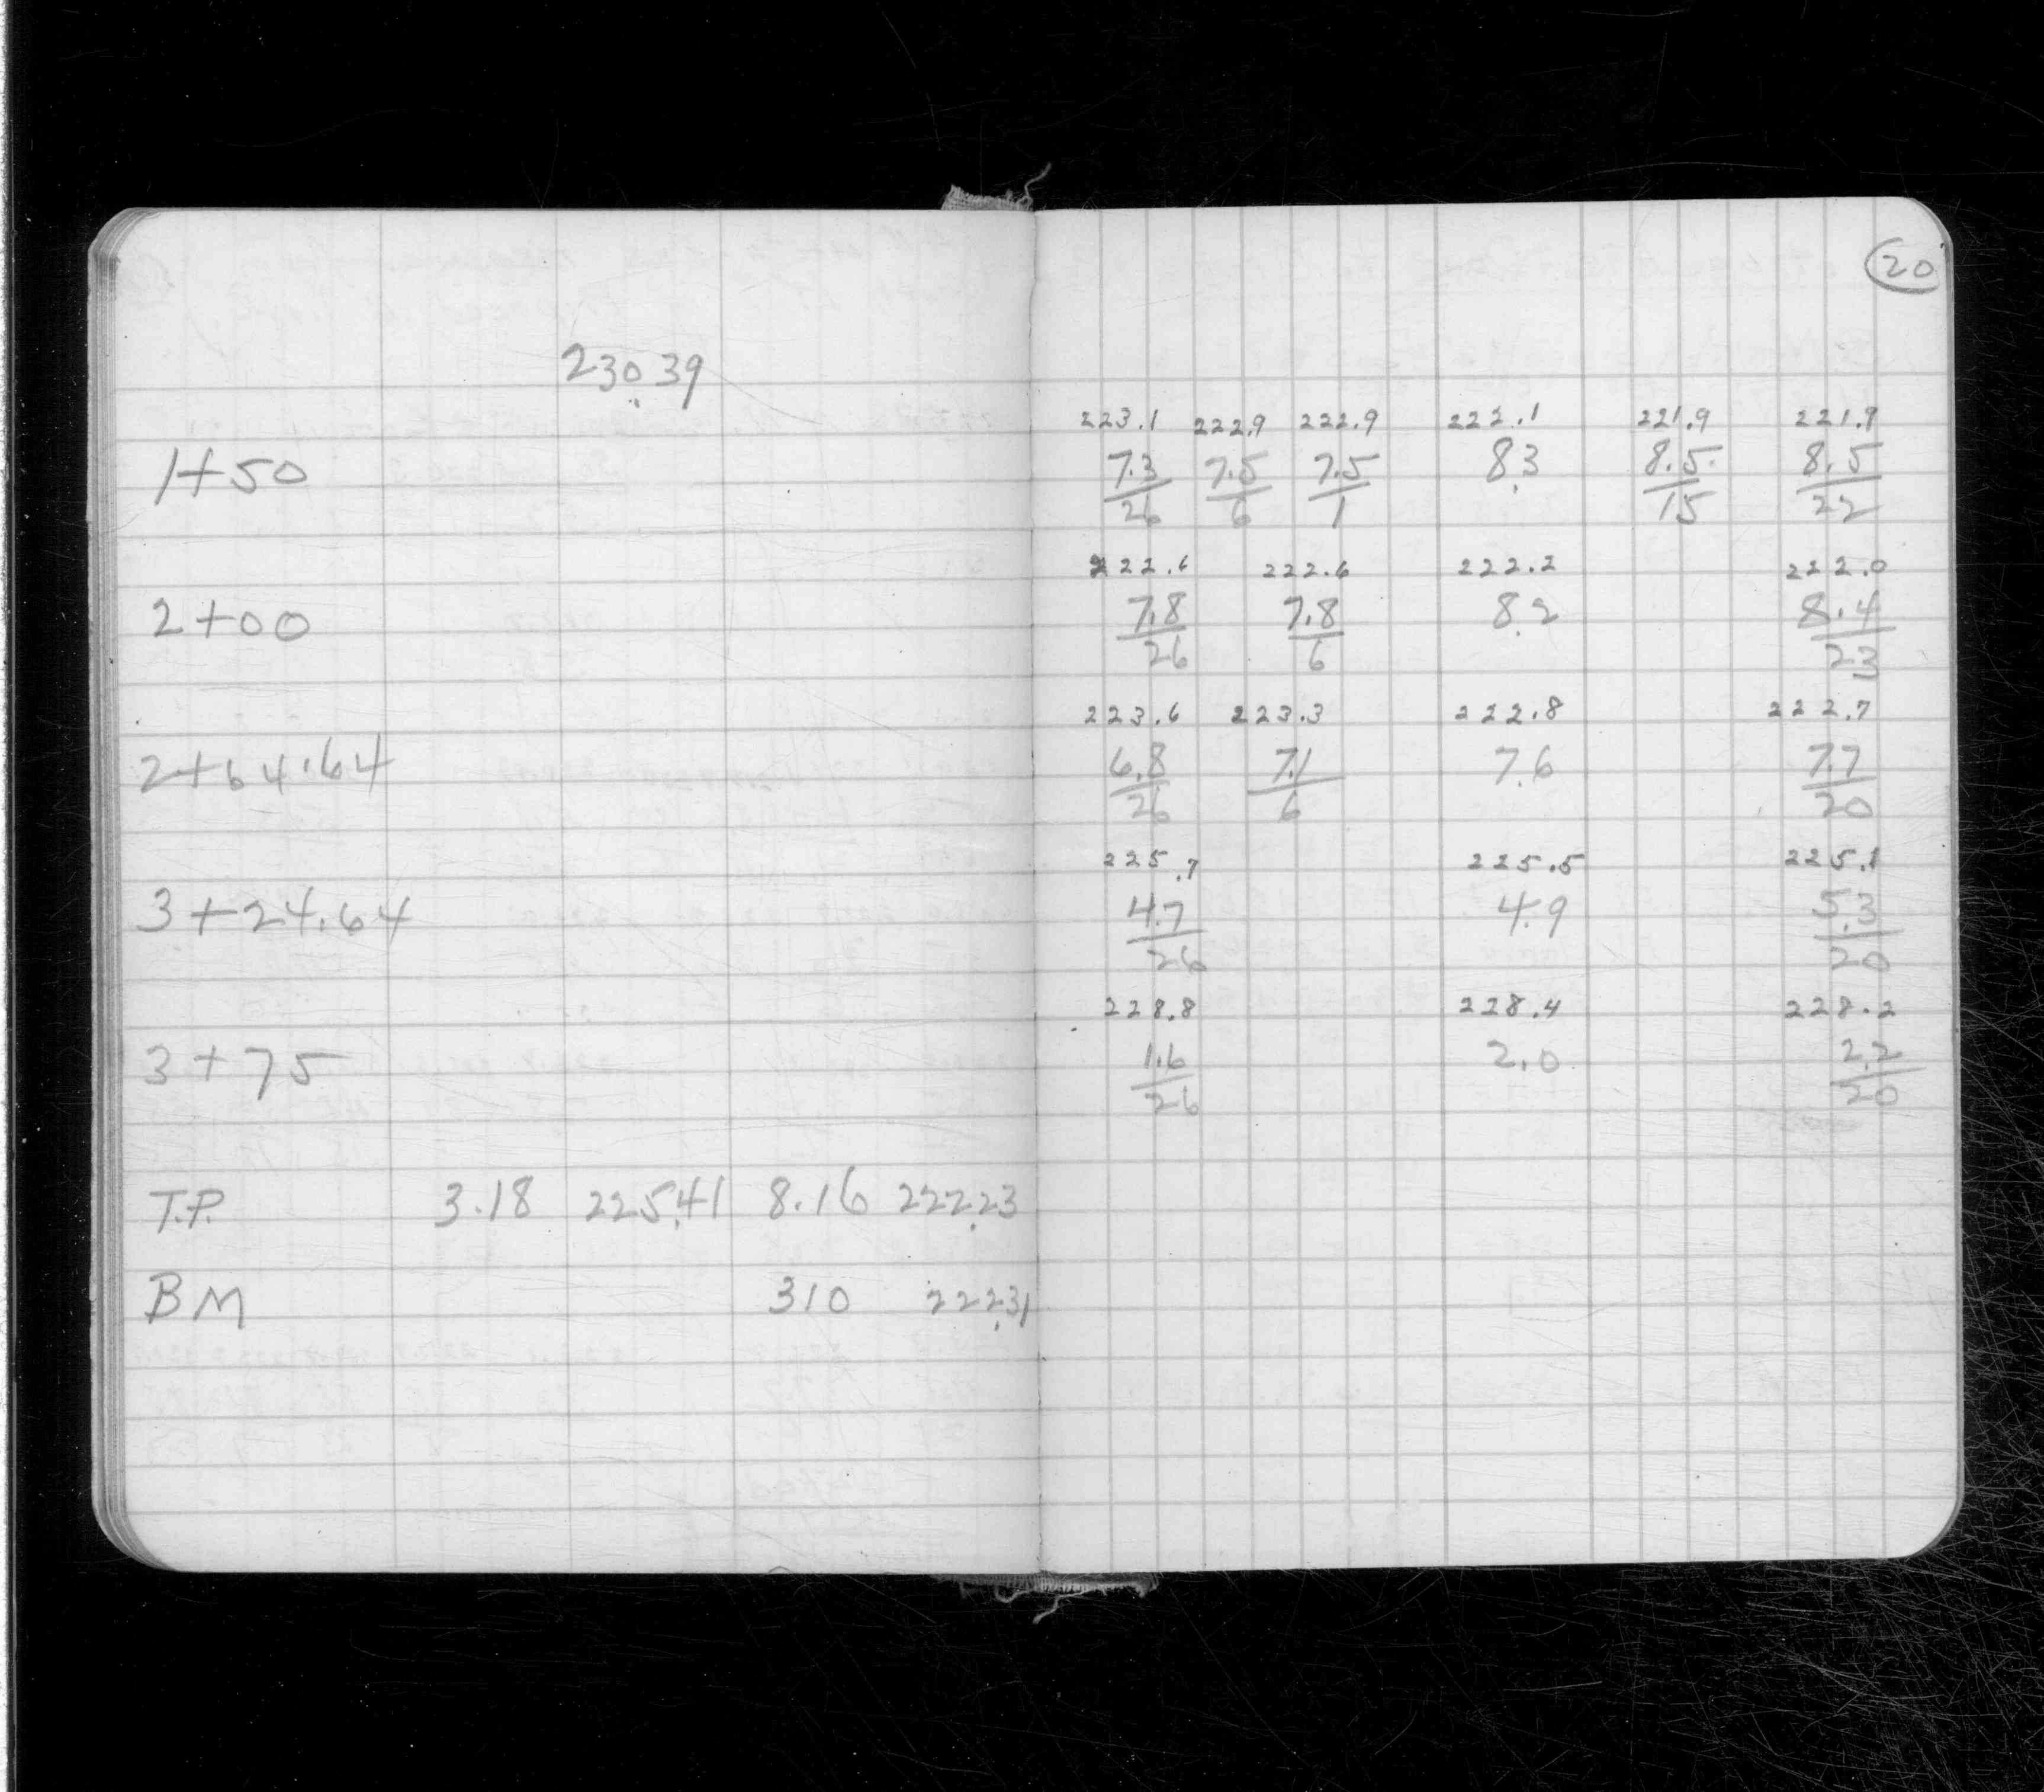 20
230.39
223.1 222.9 222.9 222.1 221.9 221.9
1+50 7.3/26 7.5/6 7.5/1 8.3 8.5/15 8.5/22
222.6 222.6 222.2 222.0
2+00 7.8/26 7.8/6 8.2 8.4/23
223.6 223.3 222.8 222.7
2+64.64 6.8/26 7.1/6 7.6 7.7/20
225.7 225.5 225.1
3+24.64 4.7/26 4.9 5.3/20
228.8 228.4 228.2
3+75 1.6/26 2.0 2.2/20
T.P. 3.18 225.41 8.16 222.23
BM 310 222.31